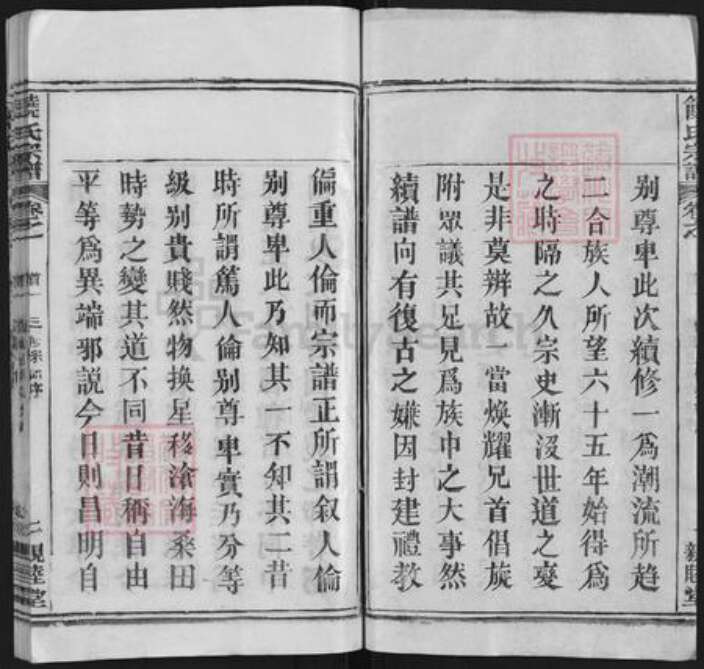 別尊卑此次續修一為潮流所趋
二合族人所望六十五年始得為
之時隔之久宗史漸沒世道之变
是非莫辨故　當煥耀兄首倡旋
附眾議共足見為族中之大事然
續譜向有復古之嫌因封建禮教
偏重人倫而宗譜正所謂叙人倫
別尊卑此乃知其一不知其二昔
時所謂篤人倫別尊卑實乃分等
級別貴賤然物換星移滄海桑田
時勢之變其道不同昔日稱自由
平等為異端邪説今日則昌明自
饒氏宗譜
卷之一
二
親睦堂
FamilySearch